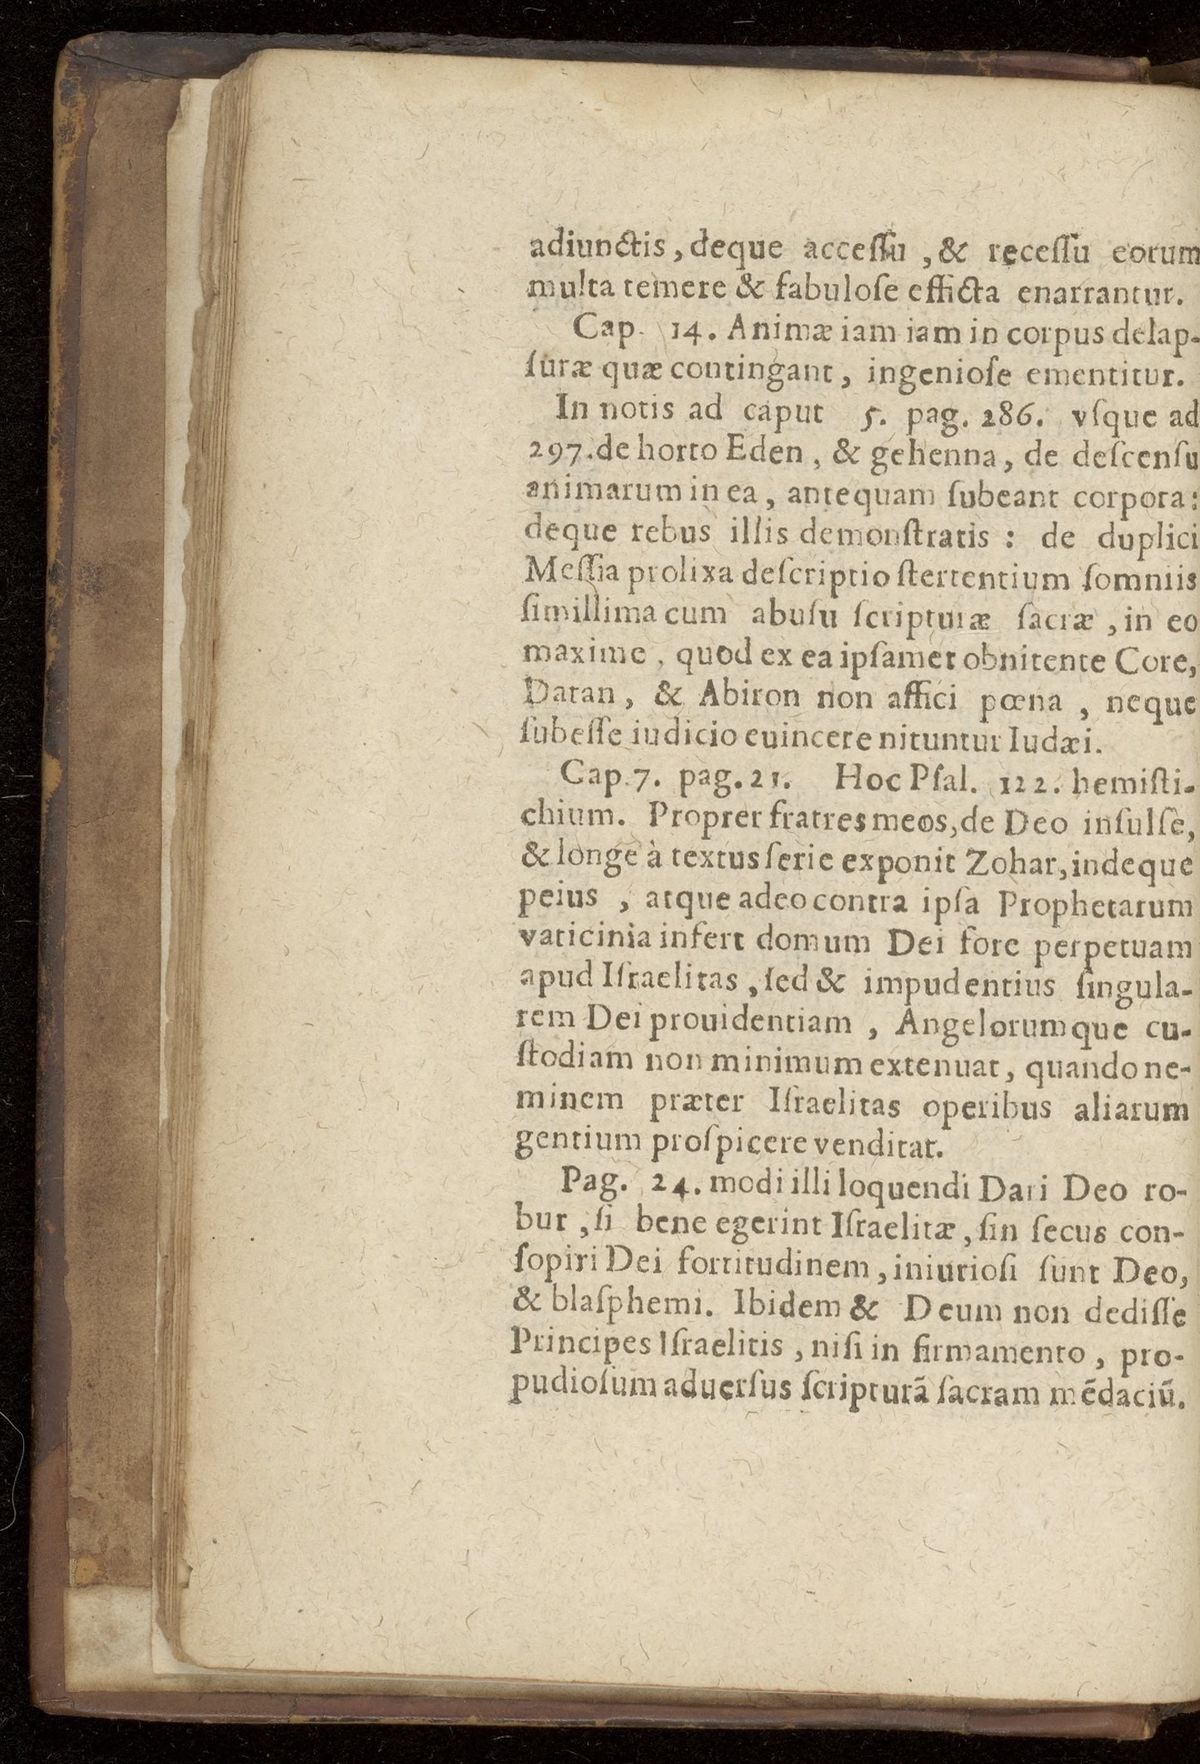 adiunctis, deque accessu, & recessu eorum
multa temere & fabulose efficta enarrantur.
Cap. 14. Animæ iam iam in corpus delap-
suræ quæ contingant, ingeniose ementitur.
In notis ad caput 5. pag. 286. vsque ad
297. de horto Eden, & gehenna, de descensu
animarum in ea, antequam subeant corpora:
deque rebus illis demonstratis: de duplici
Messia prolixa descriptio stertentium somniis
simillima cum abusu scripturæ sacræ, in eo
maxime, quod ex ea ipsamet obnitente Core,
Datan, & Abiron non affici pœna, neque
subesse iudicio euincere nituntur Iudæi.
Cap. 7. pag. 21. Hoc Psal. 122. hemisti-
chium. Propter fratres meos, de Deo insulse,
& longe à textus serie exponit Zohar, indeque
peius, atque adeo contra ipsa Prophetarum
vaticinia infert domum Dei fore perpetuam
apud Israelitas, sed & impudentius singula-
rem Dei prouidentiam, Angelorumque cu-
stodiam non minimum extenuat, quando ne-
minem præter Israelitas operibus aliarum
gentium prospicere venditat.
Pag. 24. modi illi loquendi Dari Deo ro-
bur, si bene egerint Israelitæ, sin secus con-
sopiri Dei fortitudinem, iniuriosi sunt Deo,
& blasphemi. Ibidem & Deum non dedisse
Principes Israelitis, nisi in firmamento, pro-
pudiosum aduersus scripturã sacram mẽdaciũ.